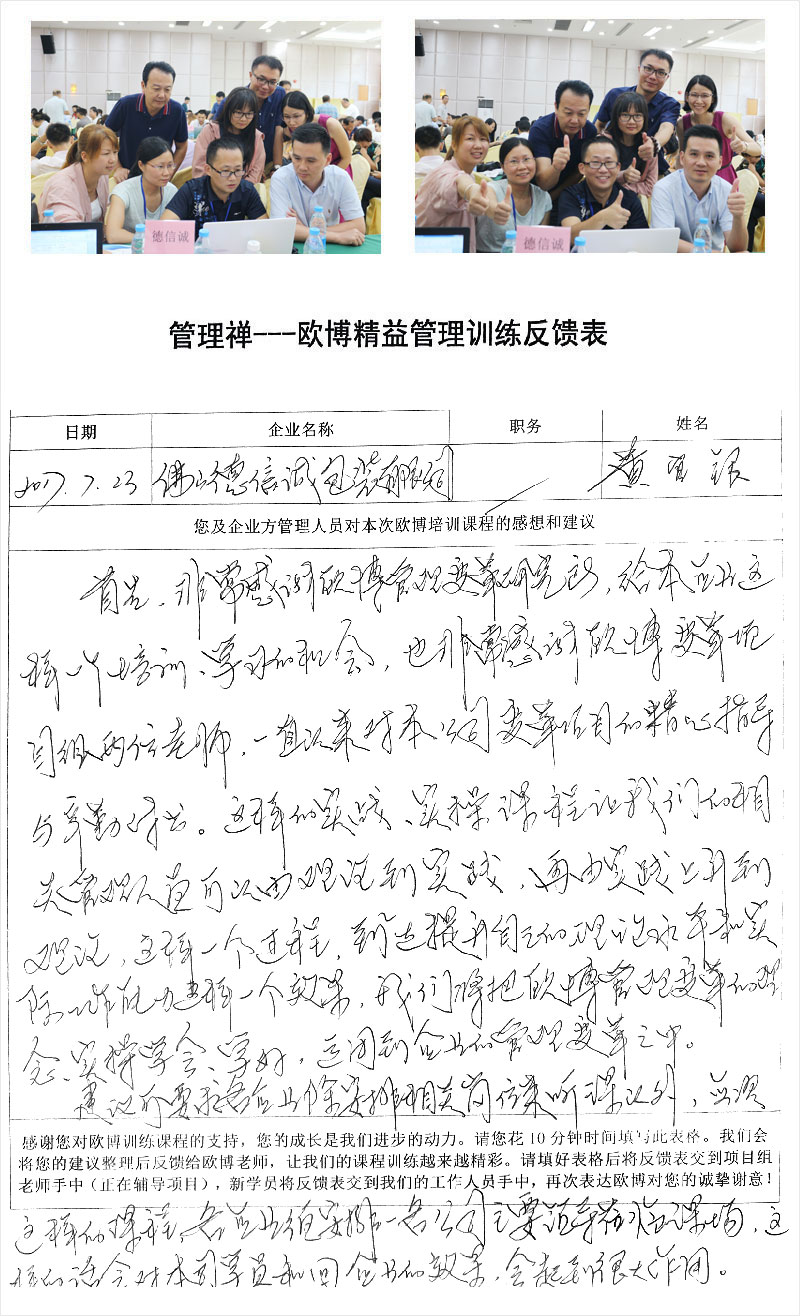 德信诚
德信诚
管理禅---欧博精益管理训练反馈表
日期 企业名称 职务 姓名
2017.7.23 佛山德信诚包装有限公司 黄
您及企业方管理人员对本次欧博培训课程的感想和建议
首先，非常感谢欧博管理变革研究所，给本企业这
样一个培训、学习的机会，也非常感谢欧博变革项
目组两位老师，一直以来对本公司变革项目的精心指导
与辛勤付出。这样的实战、实操课程让我们的相
关管理人员可以由理论到实践，再由实践上升到
理论，这样一个过程，到达提升自己的理论水平和实
际工作能力这样一个效果，我们将把欧博管理变革的理
念、实操学会、学好，运用到企业的管理变革之中。
建议所要求各企业除安排相关岗位来听课以外，
感谢您对欧博训练课程的支持，您的成长是我们进步的动力。请您花10分钟时间填写此表格。我们会
将您的建议整理后反馈给欧博老师，让我们的课程训练越来越精彩。请填好表格后将反馈表交到项目组
老师手中（正在辅导项目），新学员将反馈表交到我们的工作人员手中，再次表达欧博对您的诚挚谢意！
这样的课程，各企业须安排一名公司主要领导莅临课场，这
样的话会对本司学员和回企业的效果，会起到很大作用。